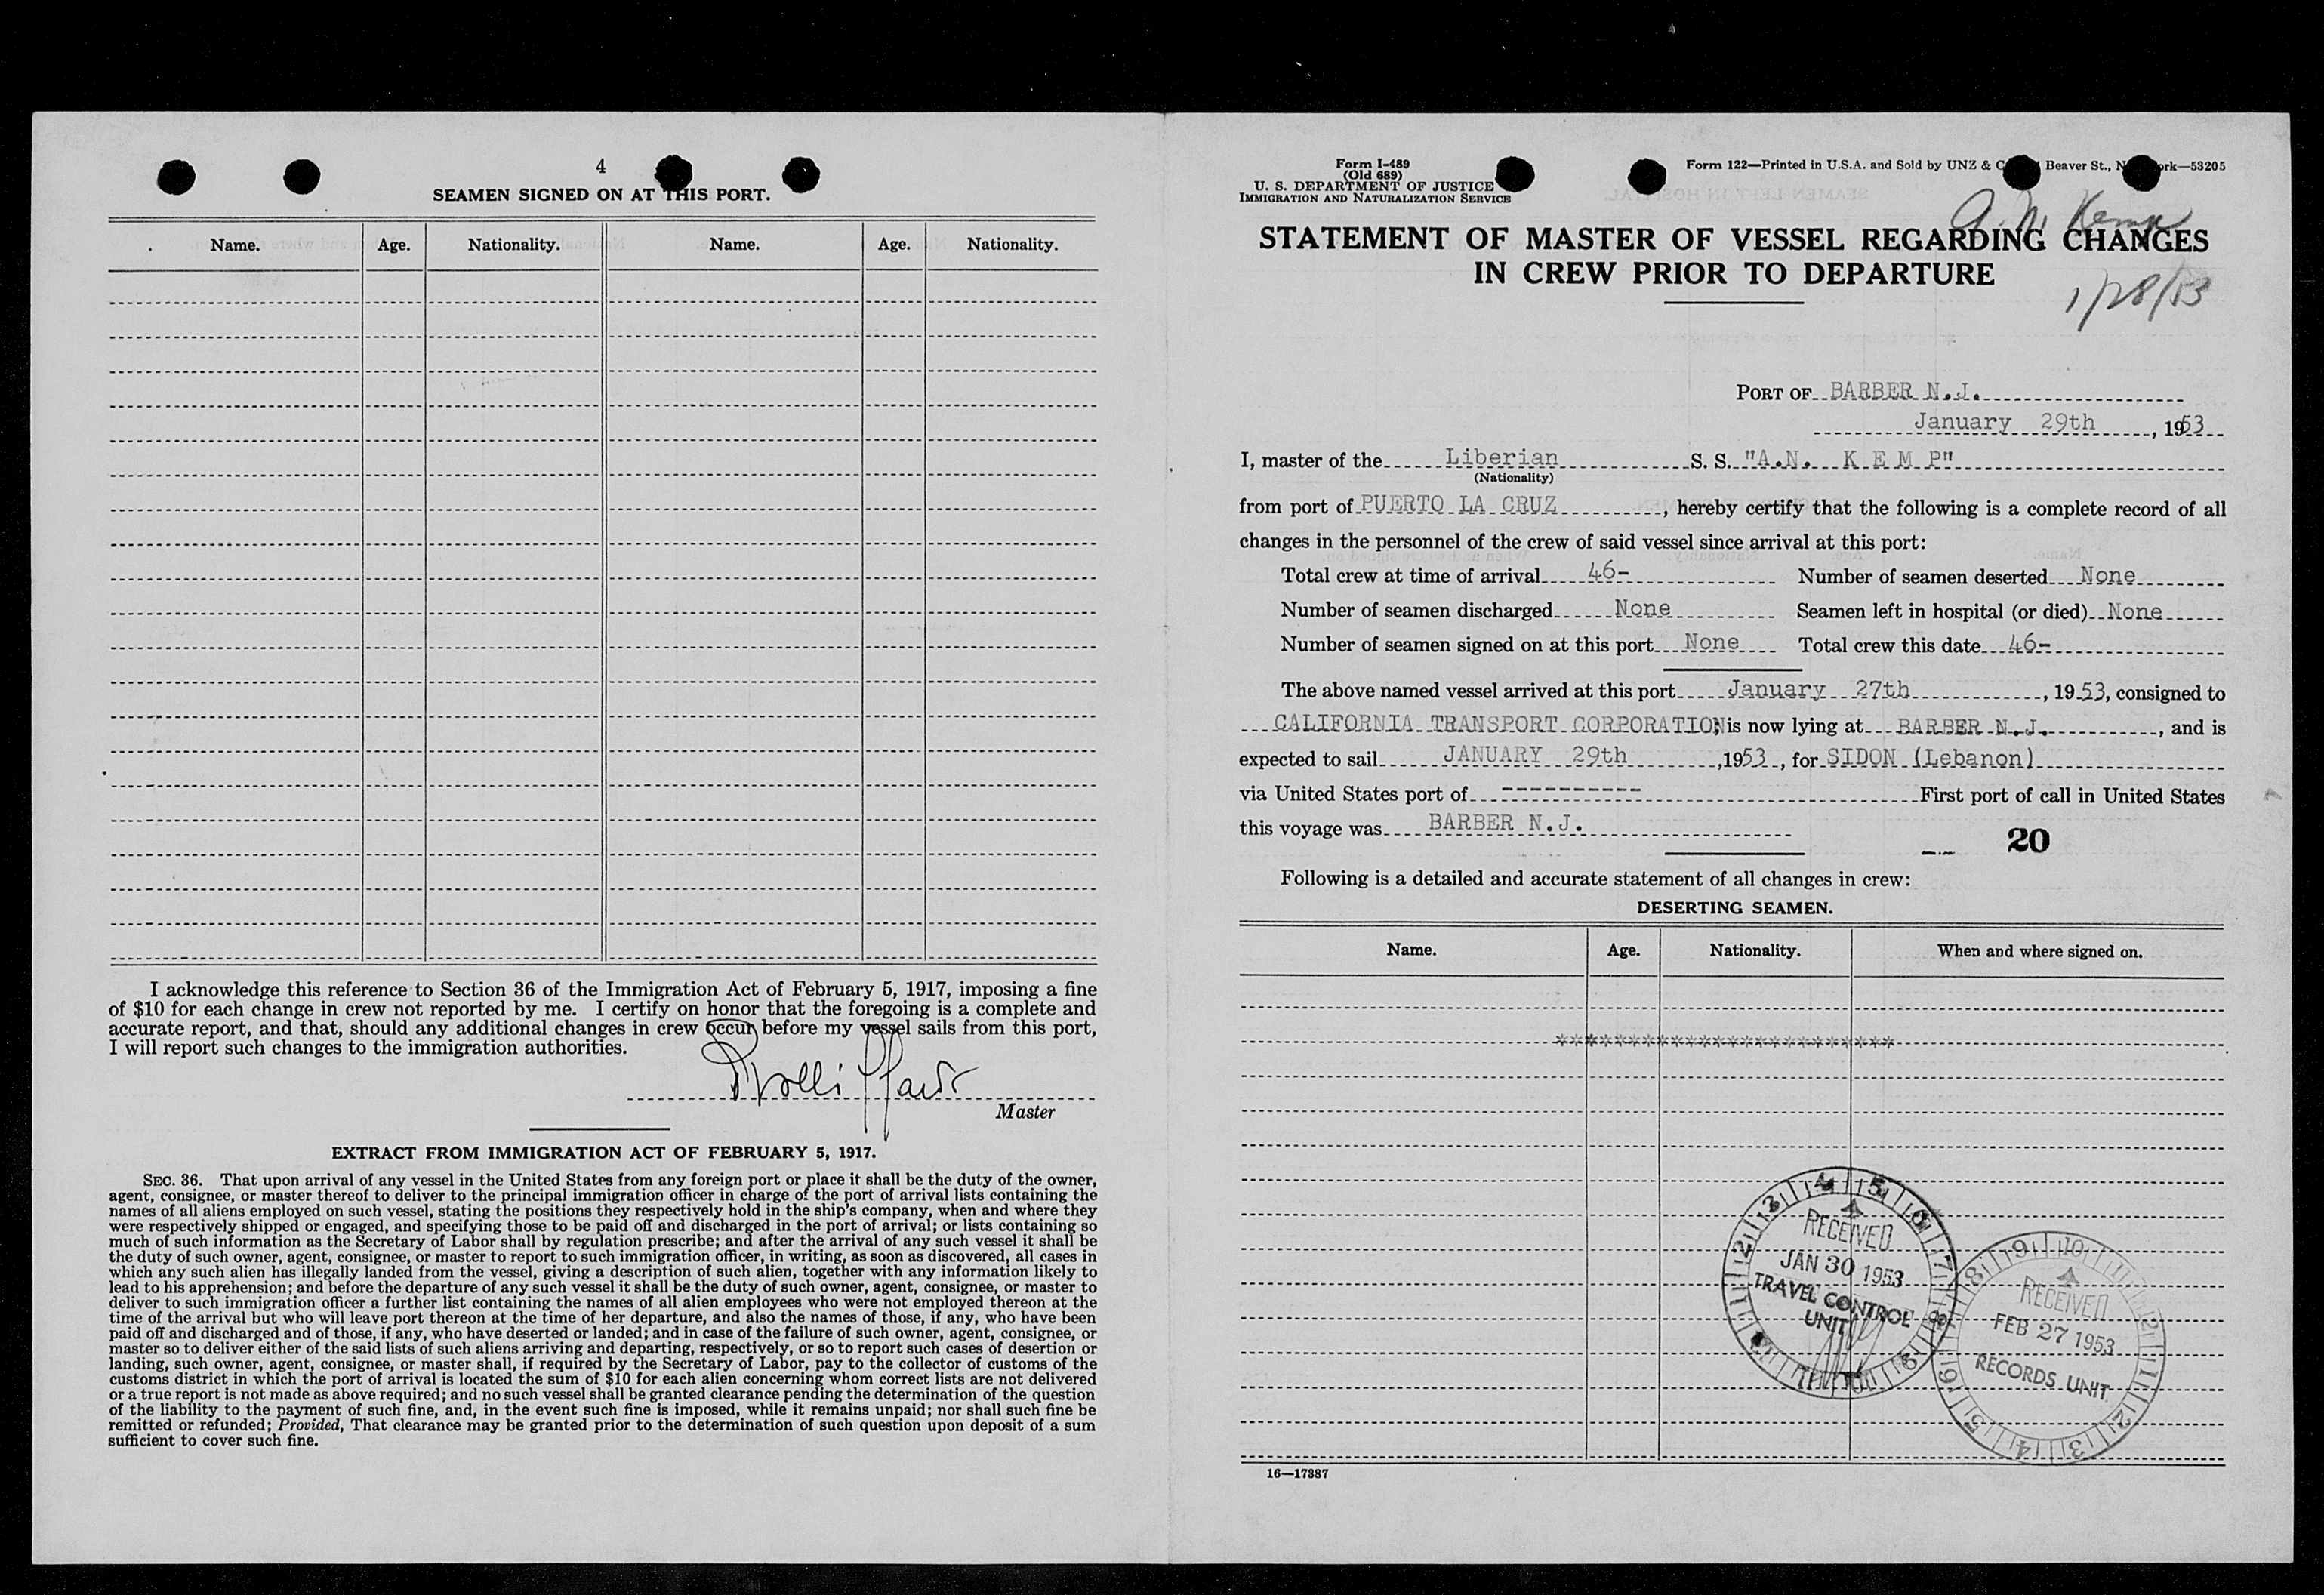 4
SEAMEN SIGNED ON AT THIS PORT.
Name. Age. Nationality. Name. Age. Nationality.
I acknowledge this reference to Section 36 of the Immigration Act of February 5, 1917, imposing a fine
of $10 for each change in crew not reported by me. I certify on honor that the foregoing is a complete and
accurate report, and that, should any additional changes in crew occur before my vessel sails from this port,
I will report such changes to the immigration authorities.
Master
EXTRACT FROM IMMIGRATION ACT OF FEBRUARY 5, 1917.
SEC. 36. That upon arrival of any vessel in the United States from any foreign port or place it shall be the duty of the owner,
agent, consignee, or master thereof to deliver to the principal immigration officer in charge of the port of arrival lists containing the
names of all aliens employed on such vessel, stating the positions they respectively hold in the ship's company, when and where they
were respectively shipped or engaged, and specifying those to be paid off and discharged in the port of arrival; or lists containing so
much of such information as the Secretary of Labor shall by regulation prescribe; and after the arrival of any such vessel it shall be
the duty of such owner, agent, consignee, or master to report to such immigration officer, in writing, as soon as discovered, all cases in
which any such alien has illegally landed from the vessel, giving a description of such alien, together with any information likely to
lead to his apprehension; and before the departure of any such vessel it shall be the duty of such owner, agent, consignee, or master to
deliver to such immigration officer a further list containing the names of all alien employees who were not employed thereon at the
time of the arrival but who will leave port thereon at the time of her departure, and also the names of those, if any, who have been
paid off and discharged and of those, if any, who have deserted or landed; and in case of the failure of such owner, agent, consignee, or
master so to deliver either of the said lists of such aliens arriving and departing, respectively, or so to report such cases of desertion or
landing, such owner, agent, consignee, or master shall, if required by the Secretary of Labor, pay to the collector of customs of the
customs district in which the port of arrival is located the sum of $10 for each alien concerning whom correct lists are not delivered
or a true report is not made as above required; and no such vessel shall be granted clearance pending the determination of the question
of the liability to the payment of such fine, and, in the event such fine is imposed, while it remains unpaid; nor shall such fine be
remitted or refunded; Provided, That clearance may be granted prior to the determination of such question upon deposit of a sum
sufficient to cover such fine.
Form I-489
(Old 689)
U. S. DEPARTMENT OF JUSTICE
IMMIGRATION AND NATURALIZATION SERVICE
Form 122—Printed in U.S.A. and Sold by UNZ & Beaver St., 53205
A. N. Kemp
STATEMENT OF MASTER OF VESSEL REGARDING CHANGES
IN CREW PRIOR TO DEPARTURE
1/28/53
PORT OF BARBER N.J.
January 29th, 1953
I, master of the Liberian S. S. "A.N. K E M P"
(Nationality)
from port of PUERTO LA CRUZ, hereby certify that the following is a complete record of all
changes in the personnel of the crew of said vessel since arrival at this port:
Total crew at time of arrival 46- Number of seamen deserted None
Number of seamen discharged None Seamen left in hospital (or died) None
Number of seamen signed on at this port None Total crew this date 46-
The above named vessel arrived at this port January 27th, 1953, consigned to
CALIFORNIA TRANSPORT CORPORATION; is now lying at BARBER N.J., and is
expected to sail JANUARY 29th, 1953, for SIDON (Lebanon)
via United States port of ---------- First port of call in United States
this voyage was BARBER N.J.
20
Following is a detailed and accurate statement of all changes in crew:
DESERTING SEAMEN.
Name. Age. Nationality. When and where signed on.
************************
RECEIVED
JAN 30 1953
TRAVEL CONTROL
UNIT
RECEIVED
FEB 27 1953
RECORDS UNIT
16—17887